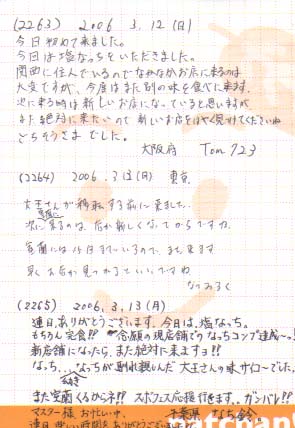 (2263) 2006. 3. 12 (日)
今日初めて来ました。
今日は塩なっちをいただきました。
関西に住んでいるのでなかなかお店に来るのは
大変ですが、今度はまた別の味を食べに来ます。
次に来る時は新しいお店になっていると思いますが
また絶対に来たいので新しいお店をはやく見つけてくださいね
ごちそうさまでした。
大阪府 Tom 723
(2264) 2006. 3. 13 (月) 東京
大王さんが移転する前に来ました。
次に来るのは、店が新しくなってからですかね。
室蘭には 日までいるので、また来ます
早くお店が見つかるといいですね
なつみるく
(2265) 2006. 3. 13 (月)
連日、ありがとうございます。今日は、塩なっち。
もちろん完食!! 念願の現店舗でのなっちコンプ達成〜っ!
新店舗になったら、また絶対に来ますヨ!!
なっち、、、なっちが惚れ込んだ大王さんの味サイコーでした。
また室蘭くるからネ!! スポフェス応援行きます。ガンバレ!!
マスター様 お忙しい中、 千葉県 なち鈴
連日 楽しい時間をありがとうございました
atchan